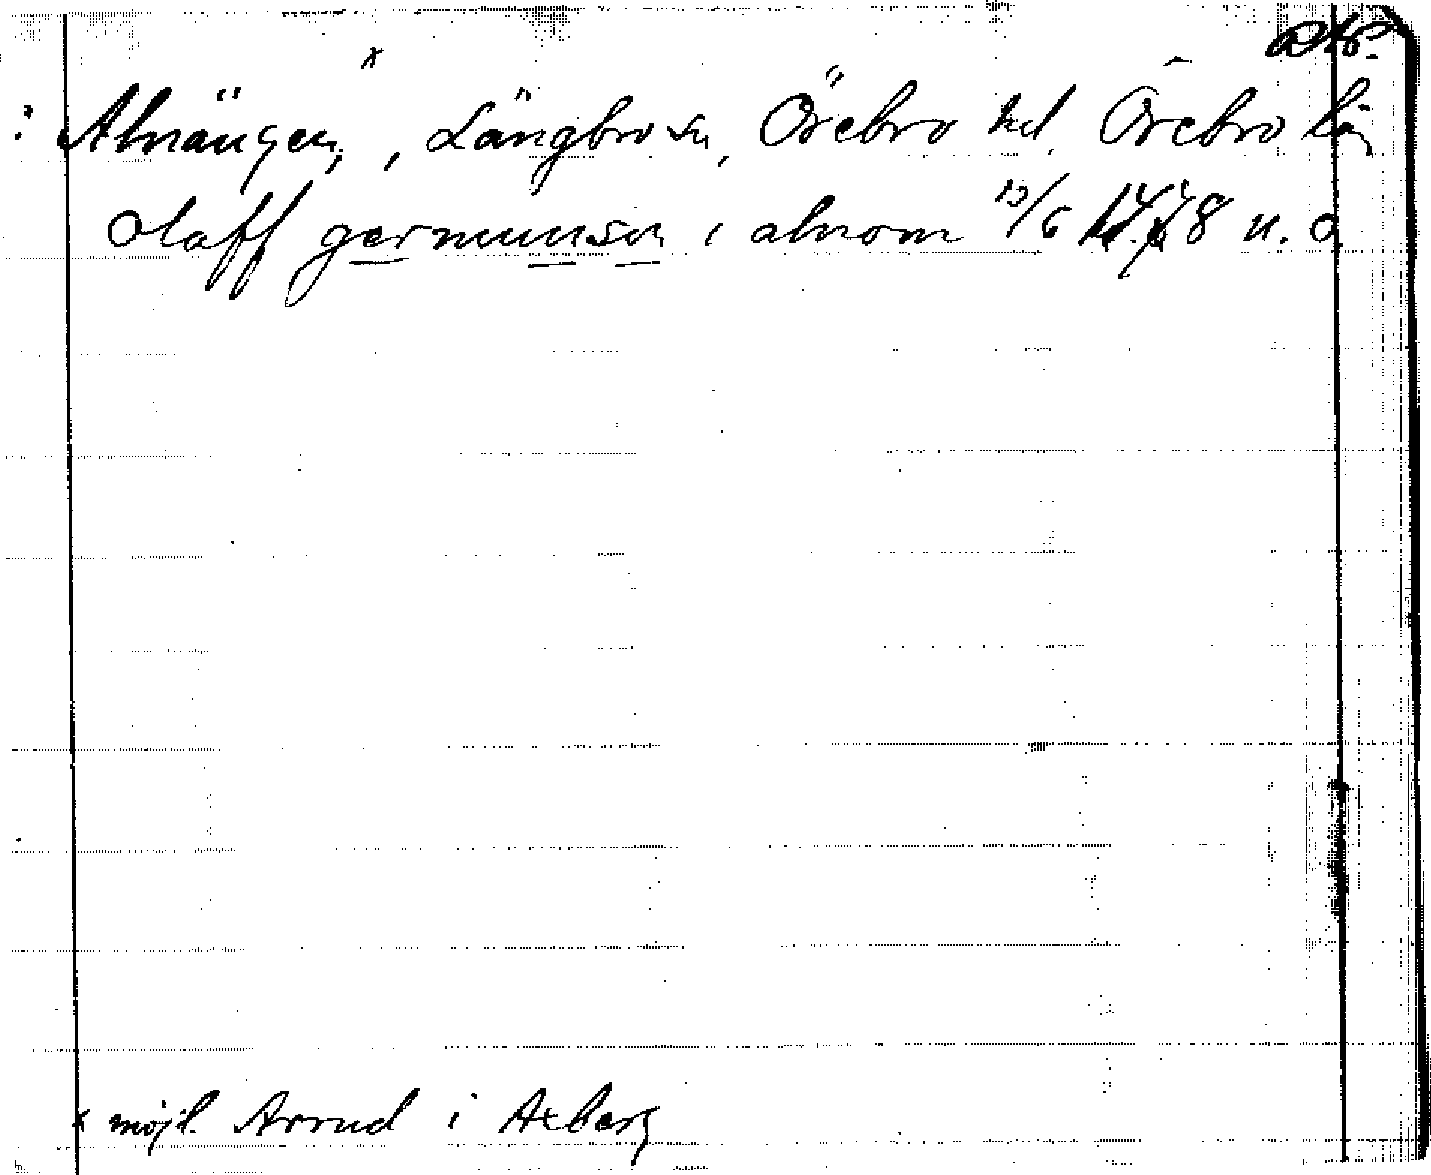 x
: Alnängen, , Längbro sn, Örebro hd. Örebro län
Olaff germunson i alnom 13/6 1478 u. o
x möjl. Arrud i Axberg